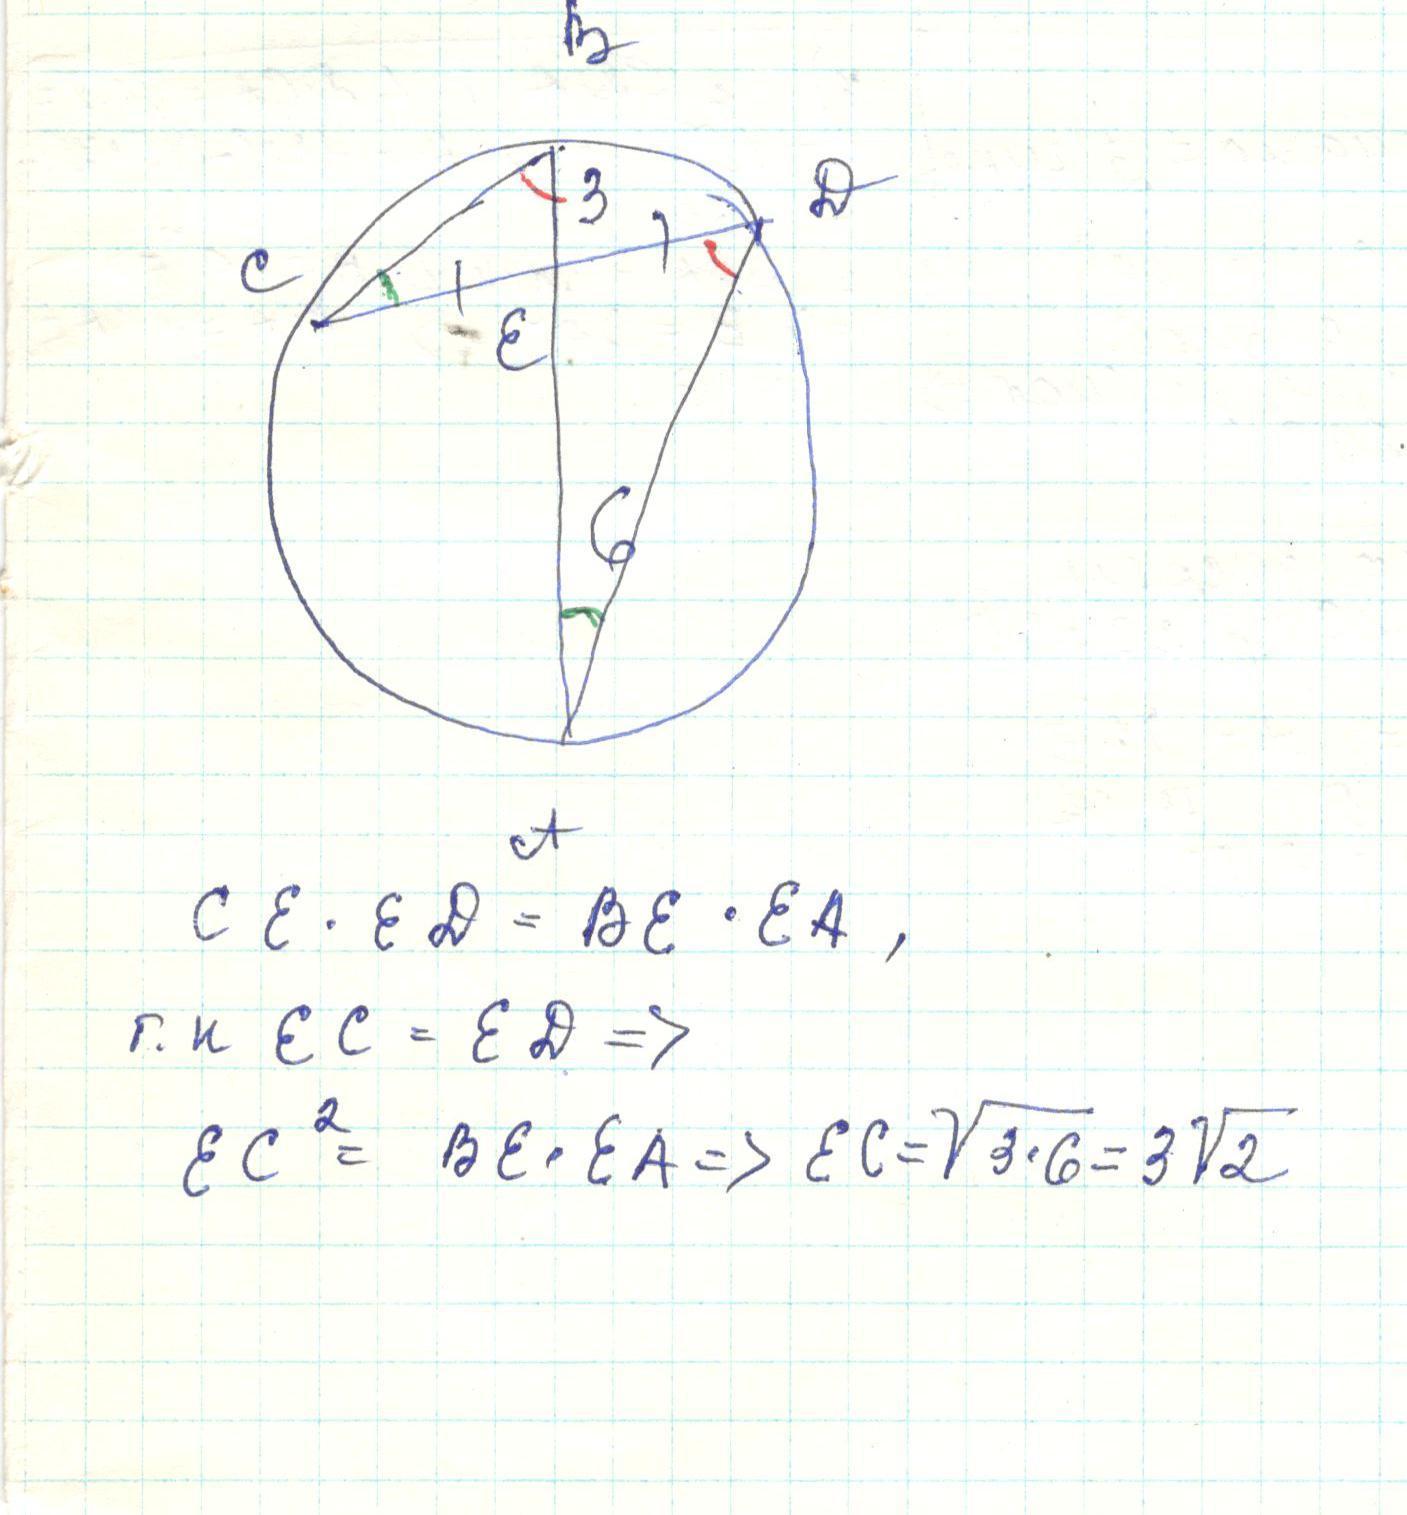 B
D
3
C
E
6
A
CE · ED = BE · EA,
т.к EC = ED =>
EC² = BE · EA => EC = √3·6 = 3√2